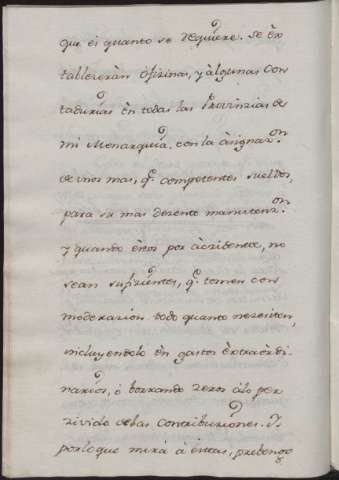 que ei quanto se requiere. Se èx
tableceràn òficinas, y àlgunas Con
tadurías èn todas las Provincias de
mi Monarquía, con la àsignaz.on
de unos mas, q.e competentes sueldos,
para su mas decente manutenz.on
y quando èstos por àccidente, no
sean suficientes, q.e tomen con
moderazion todo quanto nezesiten,
incluyendolo èn gastos èxtraòrdi
narios, ò borrando zeros àlo per
zivido de las Contribuziones. Y
porloque mira à èstas, pretendo